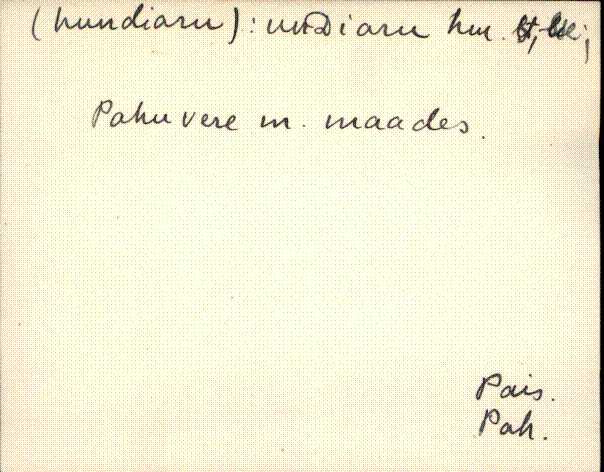 (hundiaru): unDiaru hm.
Pahuvere m. maades.
Pais.
Pah.